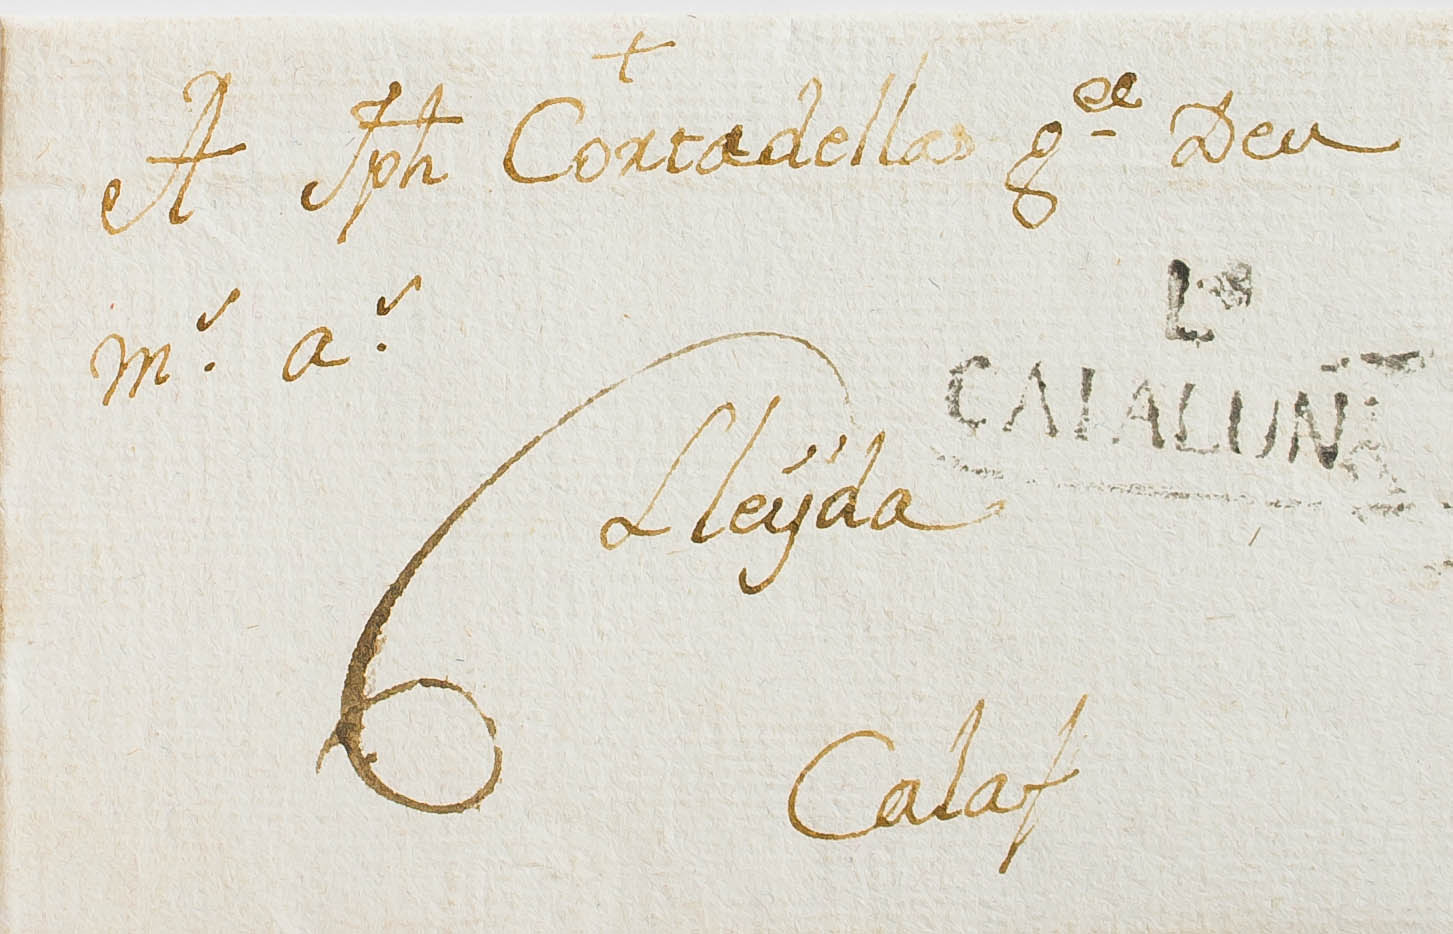 +
A Jph Cortadellas gͤͤ Deu
mˢ. aˢ.
Lˢ
CATALUÑA
Lleÿda
6
Calaf